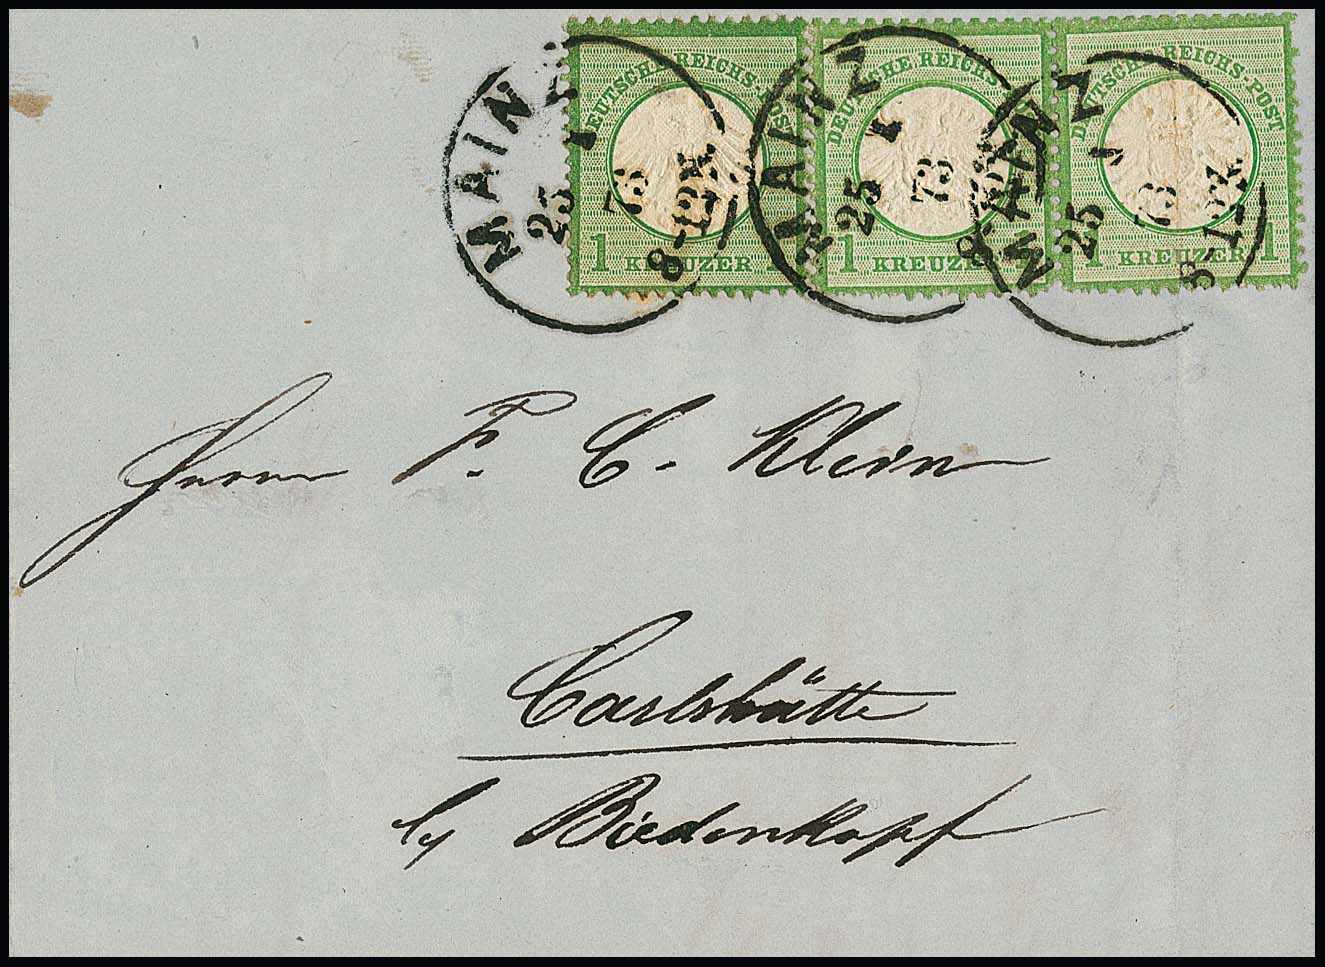 DEUTSCHE REICHS-POST
1 KREUZER 1
DEUTSCHE REICHS-POST
1 KREUZER 1
DEUTSCHE REICHS-POST
1 KREUZER 1
MAINZ
25 1 73
8-12V.
MAINZ
25 1 73
8-12V.
MAINZ
25 1 73
8-12V.
Herrn F. C. Klein
Carlshütte
by Biedenkopf